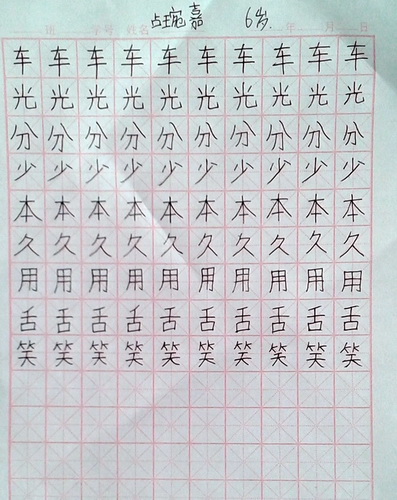 占琬嘉 6岁.
班 学号 姓名 年 月 日
车 车 车 车 车 车 车 车 车 车
光 光 光 光 光 光 光 光 光 光
分 分 分 分 分 分 分 分 分 分
少 少 少 少 少 少 少 少 少 少
本 本 本 本 本 本 本 本 本 本
久 久 久 久 久 久 久 久 久 久
用 用 用 用 用 用 用 用 用 用
舌 舌 舌 舌 舌 舌 舌 舌 舌 舌
笑 笑 笑 笑 笑 笑 笑 笑 笑 笑